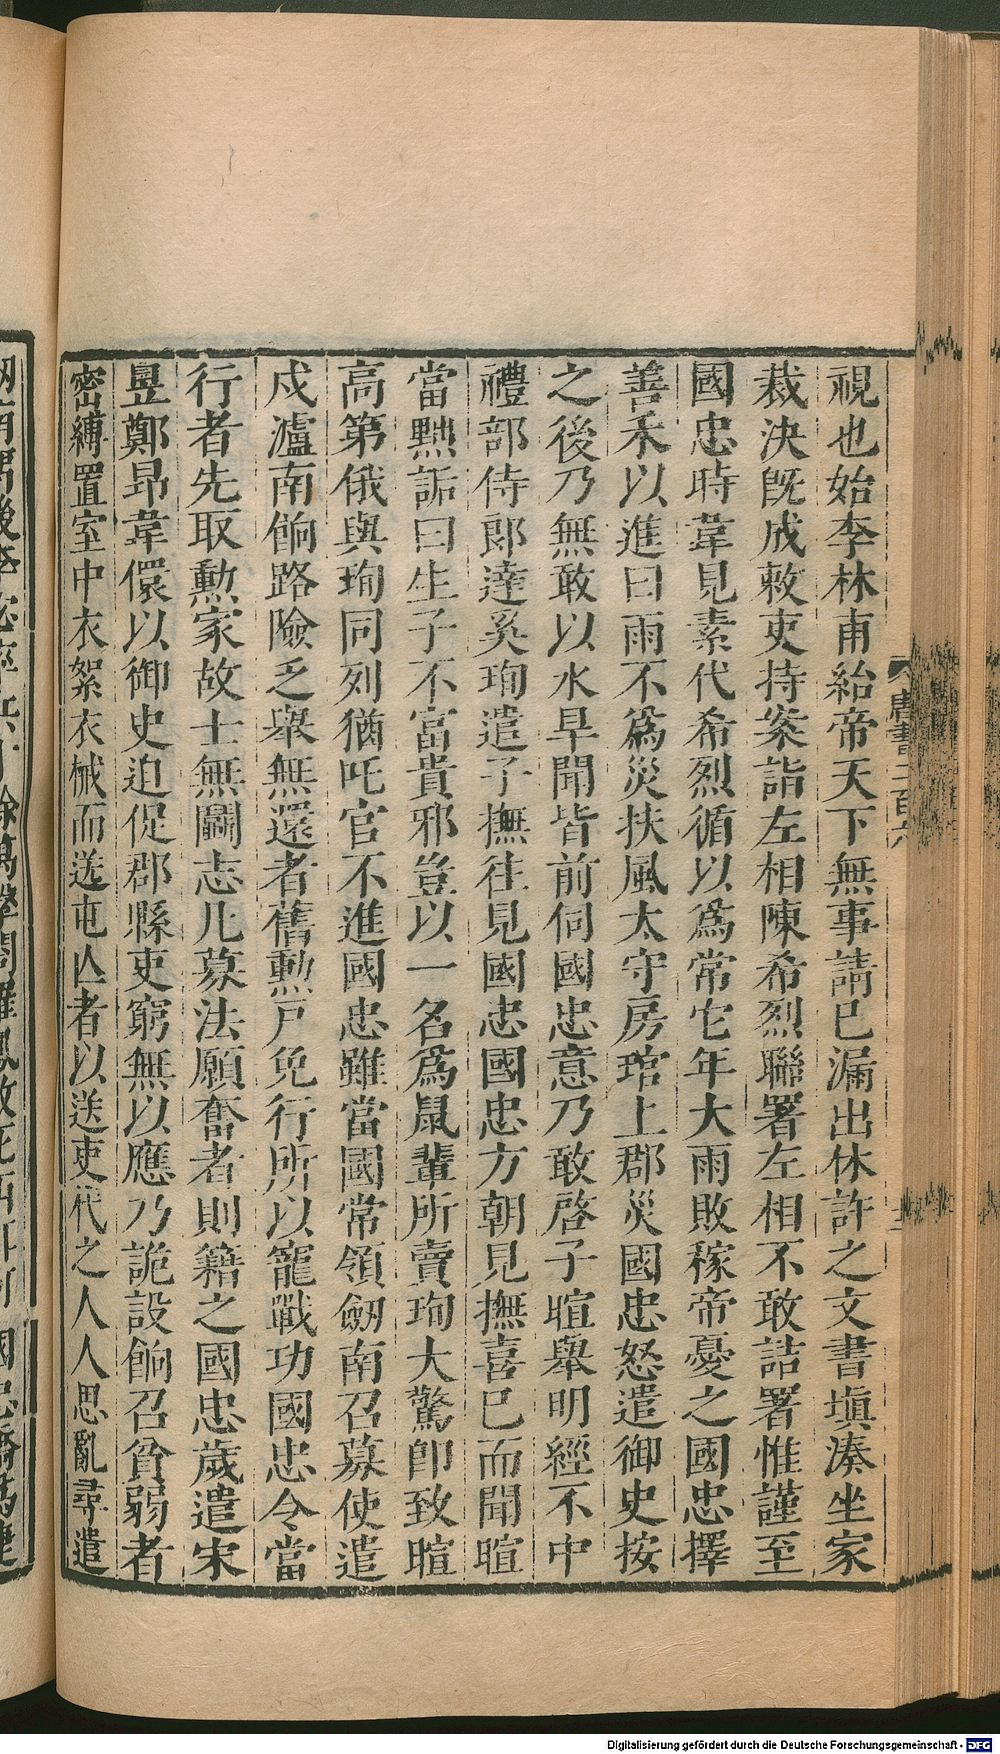 視也始李林甫紿帝天下無事請巳漏出休許之文書塡湊坐家
裁決旣成敕吏持案詣左相陳希烈聯署左相不敢詰署惟謹至
國忠時韋見素代希烈循以爲常它年大雨敗稼帝憂之國忠擇
善禾以進曰雨不爲災扶風太守房琯上郡災國忠怒遣御史按
之後乃無敢以水旱聞皆前伺國忠意乃敢啓子暄舉明經不中
禮部侍郎達奚珣遣子撫往見國忠國忠方朝見撫喜巳而聞暄
當黜詬曰生子不富貴邪豈以一名爲鼠輩所賣珣大驚卽致暄
高第俄與珣同列猶吒官不進國忠雖當國常領劒南召募使遣
戍瀘南餉路險乏舉無還者舊勲戶免行所以寵戰功國忠令當
行者先取勲家故士無鬭志凡募法願奮者則籍之國忠歲遣宋
昱鄭昂韋儇以御史迫促郡縣吏窮無以應乃詭設餉召貧弱者
密縛置室中衣絮衣械而送屯亾者以送吏代之人人思亂尋遣
唐書二百六
Digitalisierung gefördert durch die Deutsche Forschungsgemeinschaft - DFG